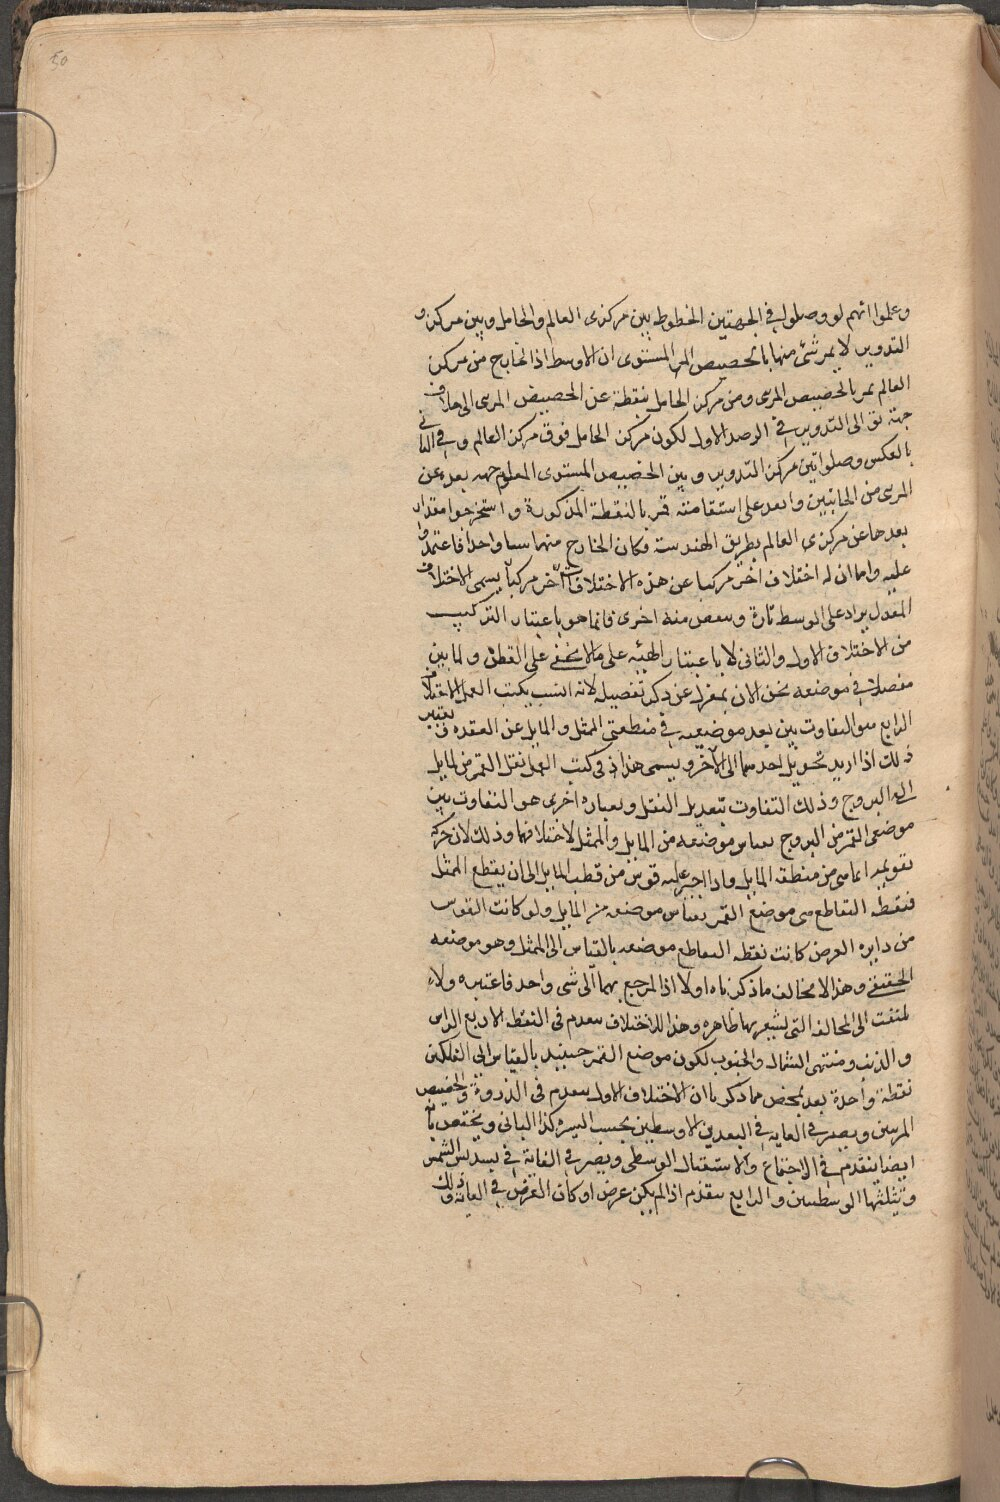 50
وعلموا انهم لو وصلوا في الجهتين الخطوط بين مركزى العالم والحامل وبين مركز و
التدوير لا يمر شئ منها بالحضيض المستوى او الاوسط اذ الخارج من مركز
العالم يمر بالحضيض المرئى ومن مركز الحامل بنقطة عن الحضيض المرئى الى خلاف
جهة الى التدوير في الرصد الاول لكون مركز الحامل فوق مركز العالم وفي الثانى
بالعكس وصلوا بين مركز التدوير وبين الحضيض المستوى المعلوم بعده عن
المرئى من الجانبين وانعد على استقامته فمر بالنقطة المذكورة واستخرجوا مقدار
بعدها عن مركزى العالم بطريق الهندسة فكان الخارج منهما واحدا فاعتمدوا
عليه واما ان له اختلاف اخر مركبا عن هذه الاختلافات اخر مركبا يسمى الاختلاف
المعدل يزاد على الوسط تارة وينقص منه اخرى فانما هو باعتبار التركيب
من الاختلاف الاول والثانى لا باعتبار الهيئه على مالا يخفى على الفطن ولما بين
مفصلا في موضعه نحن الان بمعزل عن ذكر تفصيله لانه انسب بكتب العمل الاختلاف
الرابع هو التفاوت بين بعد موضعيه في منطقتى الممثل والمايل عن العقده ويعتبر
ذلك اذا اريد تحويل احدهما الى الآخر ويسمى هذا في كتب العمل نقل القمر من المايل
الى البروج وذلك التفاوت بتعديل النقل وبعباره اخرى هو التفاوت بين
موضعى القمر من البروج بقياس موضعه من المايل والممثل لاختلافهما وذلك لان حركة
تقويمه انما هى من منطقه المايل واذا اخرج عليه قوس من قطب المايل الى ان يقطع الممثل
فنقطه التقاطع هى موضع القمر بقياس موضعه من المايل ولو كانت القوس
من دايره العرض كانت نقطه التقاطع موضعه بالقياس الى الممثل وهو موضعه
الحقيقى وهذا لا يخالف ما ذكرناه اولا اذ المرجع بهما الى شى واحد فاعتبره ولا
تلتفت الى المخالفه التى يشعر بها ظاهره وهذا الاختلاف ينعدم فى النقط الاربع الراس
والذنب ومنتهى الشمال والجنوب لكون موضع القمر حينئذ بالقياس الى الفلكين
نقطة واحدة بعد تمحص مما ذكرنا ان الاختلاف الاول ينعدم فى الذروة والحضيض
المرئيين ويصير في الغايه في البعدين الاوسطين بحسب السير وكذا الثانى ويختص بانه
ايضا ينعدم في الاجتماع والاستقبال الوسطى ويصير في الغاية في تسديس الشمس
وتثليثها الوسطيين والرابع ينعدم اذا لم يكن عرض او كان العرض في الغاية وذلك